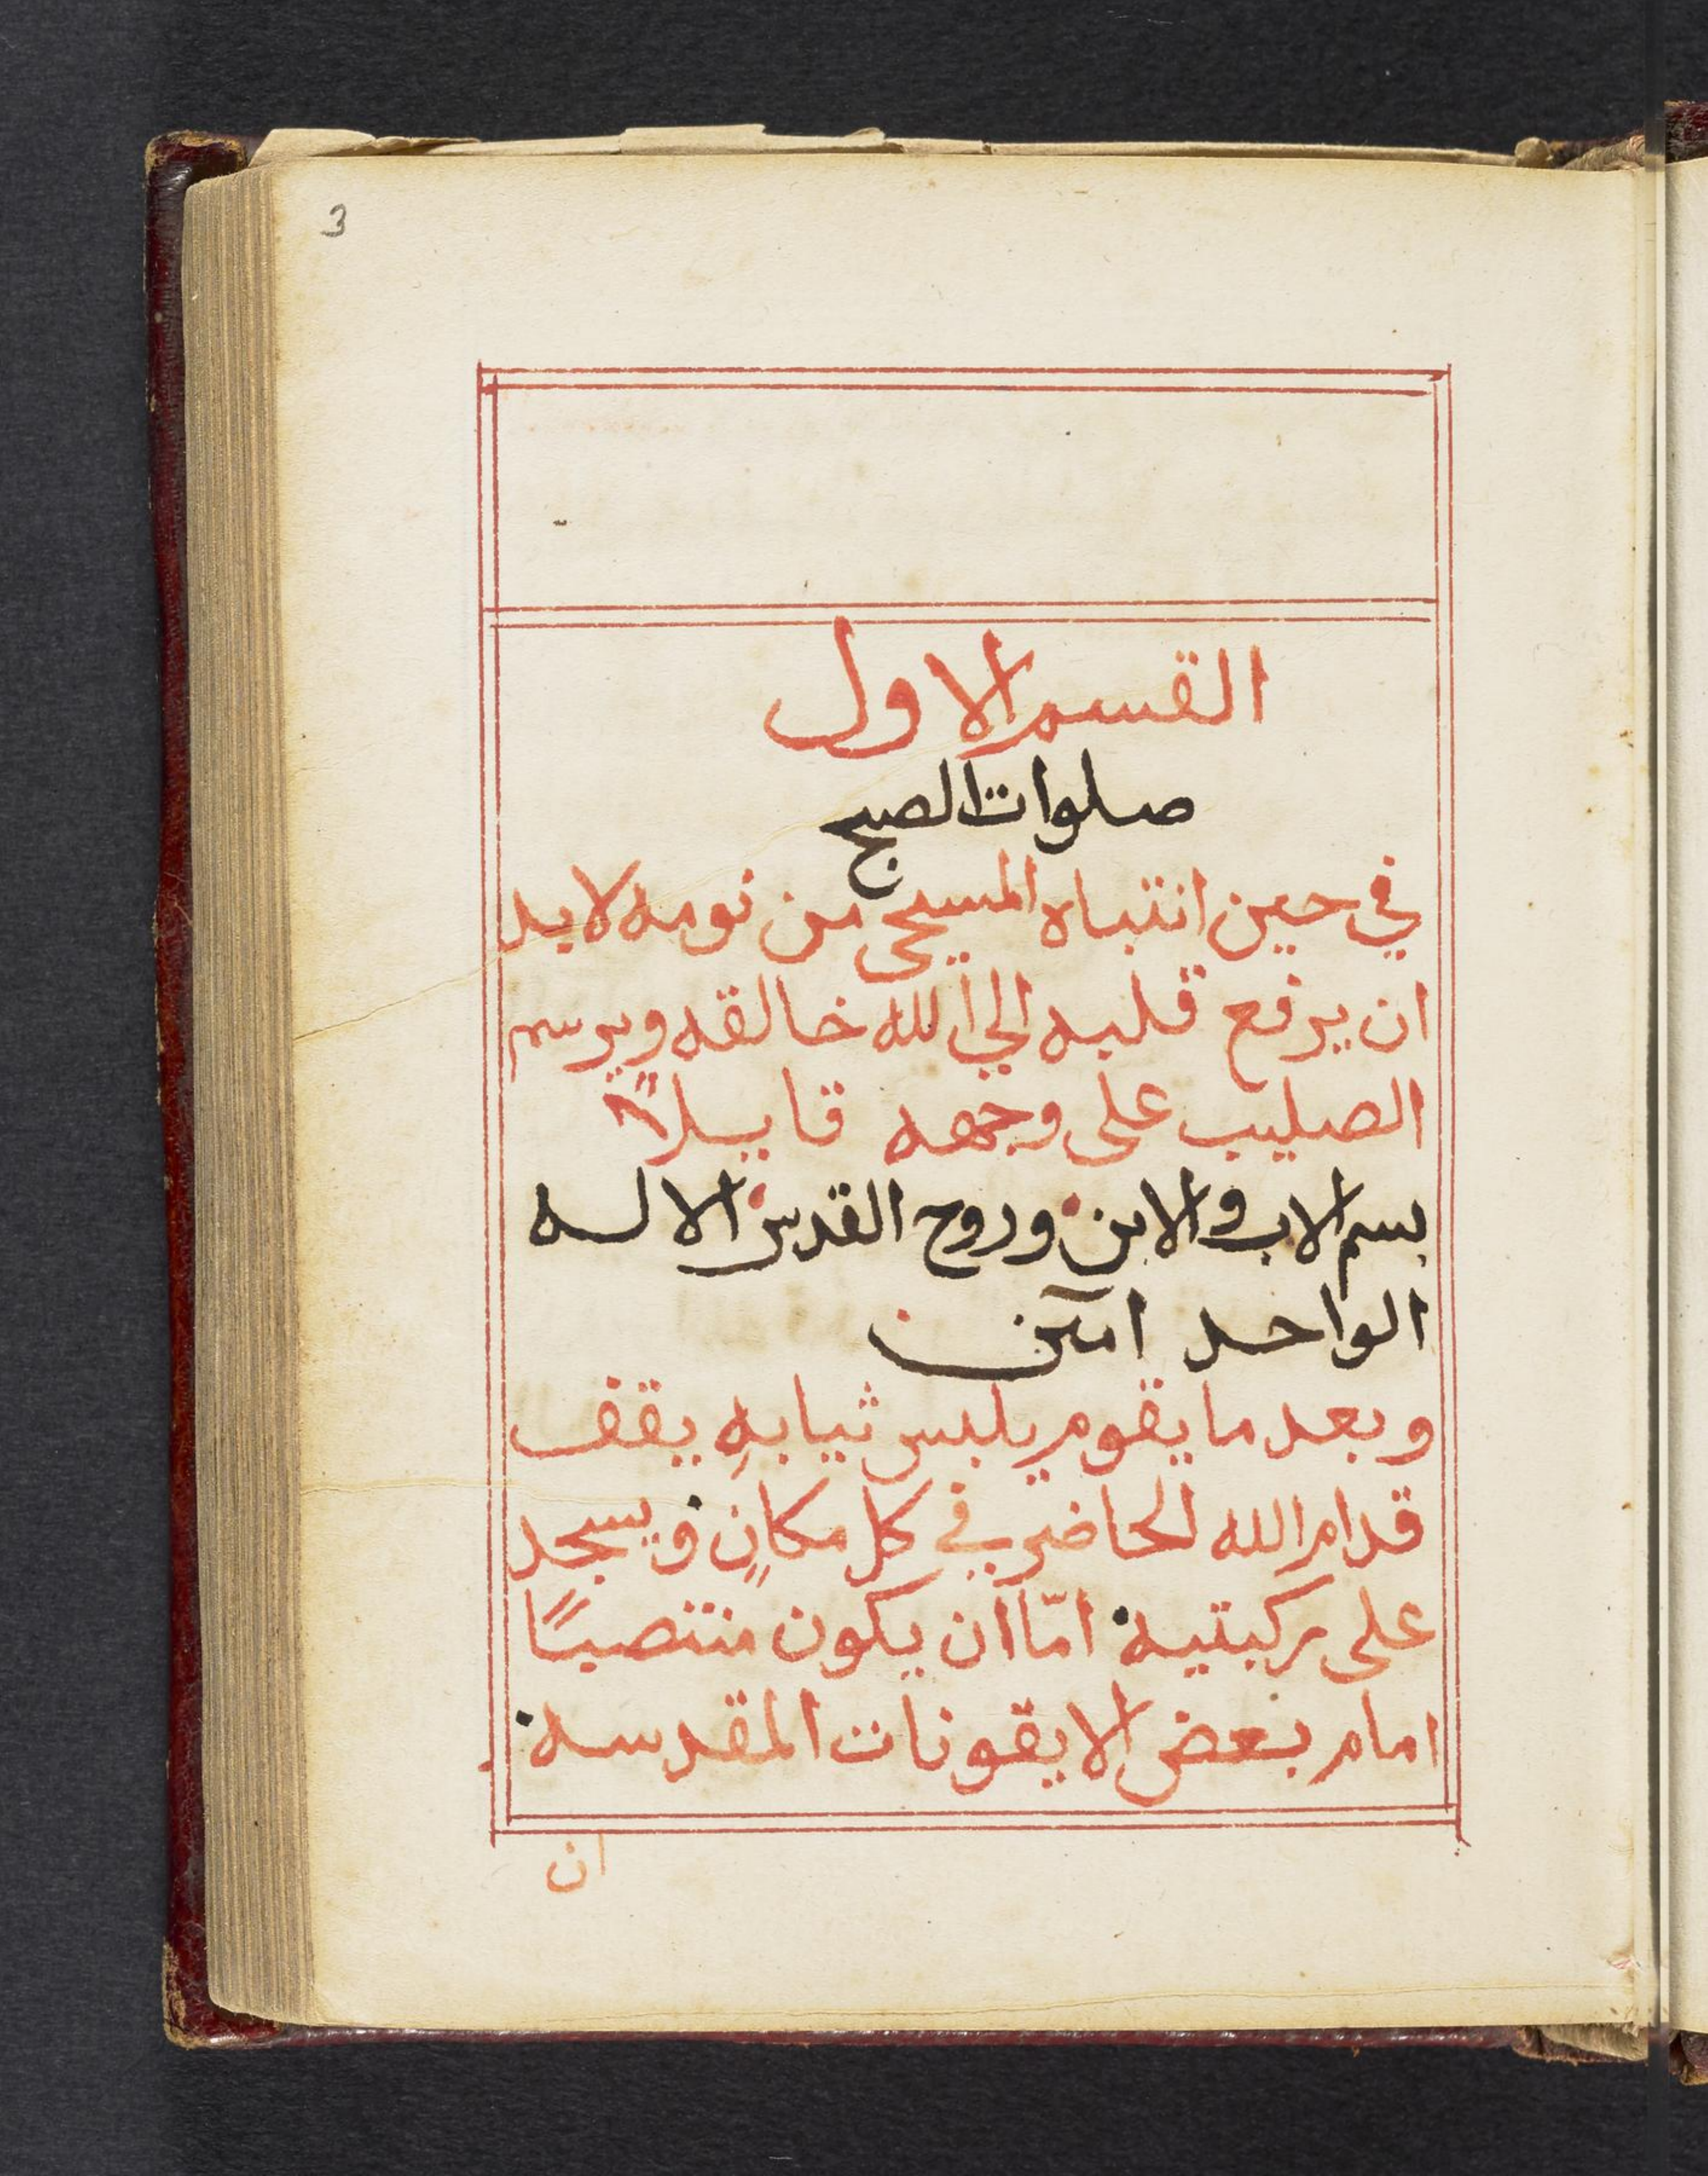 3
القسم الاول
صلوات الصبح
في حين انتباه المسيحي من نومه لابد
ان يرفع قلبه الي الله خالقه ويرسم
الصليب على وجهه قايلاً
بسم الاب والابن وروح القدس الاله
الواحد امين
وبعد ما يقوم يلبس ثيابهِ يقف
قدام الله الحاضر في كل مكانٍ ويسجد
على ركبتيه امّا ان يكون منتصبًا
امام بعض الايقونات المقدسه
ان